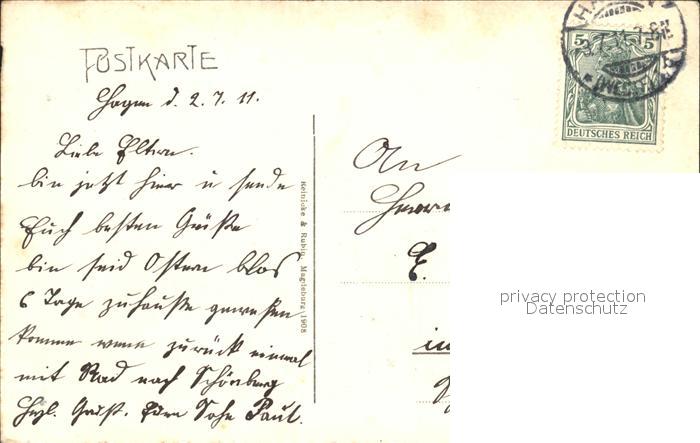 POSTKARTE
Hagen d. 2.7.11.
Liebe Eltern.
bin jetzt hier u sende
Euch besten Grüße
bin seid Ostern blos
6 Tage zuhauße gewesen
komme wenn zurück einmal
mit Rad nach Schönberg
Herzl. Gruß. Euer Sohn Paul.
Reinicke & Rubin, Magdeburg 1908
An
Herrn
E.
in
5 5
DEUTSCHES REICH
(WESTF.)
privacy protection
Datenschutz